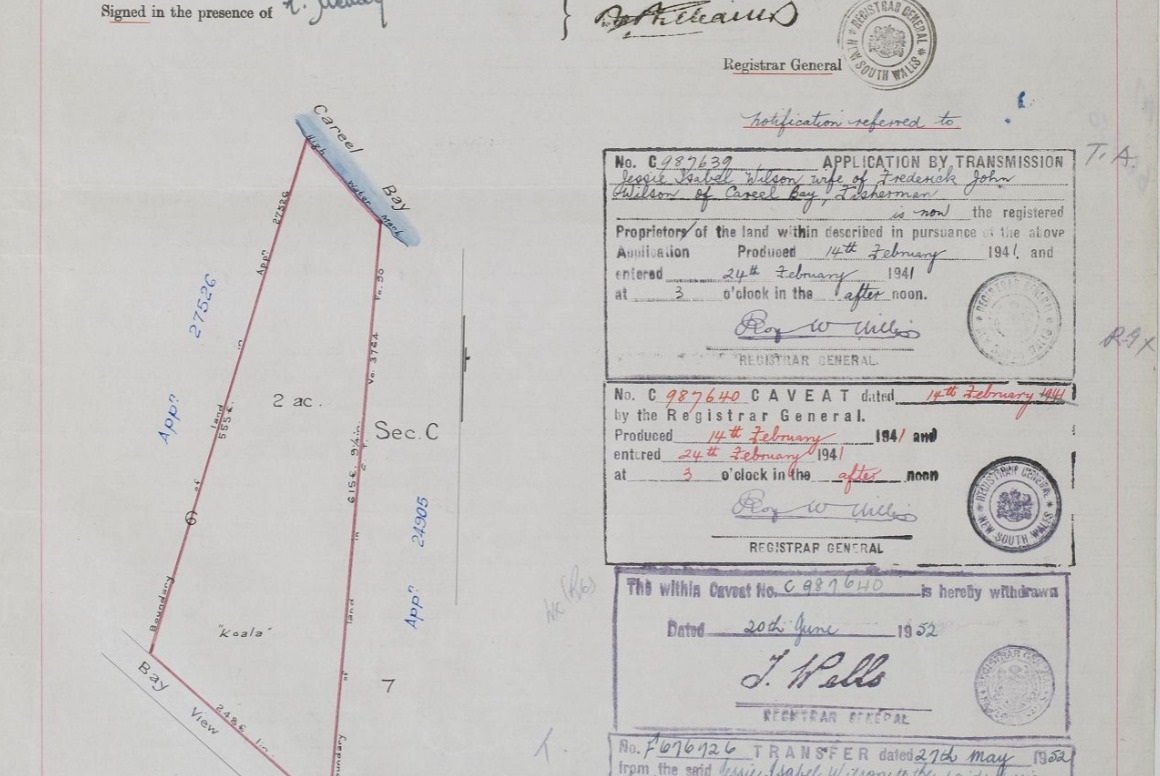 Signed in the presence of
Registrar General
REGISTRAR GENERAL
NEW SOUTH WALES
notification referred to
T. A.
No. C 987639 APPLICATION BY TRANSMISSION
Jessie Isabel Wilson wife of Frederick John
Wilson of Careel Bay, Fisherman
is now the registered
Proprietor of the land within described in pursuance of the above
Application Produced 14th February 1941 and
entered 24th February 1941
at 3 o'clock in the after noon.
Roy W Willis
REGISTRAR GENERAL
No. C 987640 CAVEAT dated 14th February 1941
by the Registrar General.
Produced 14th February 1941 and
entered 24th February 1941
at 3 o'clock in the after noon
Roy W Willis
REGISTRAR GENERAL
REGISTRAR GENERAL
NEW SOUTH WALES
The within Caveat No. C 987640 is hereby withdrawn
Dated 20th June 1952
J. Wells
REGISTRAR GENERAL
No. F676726 TRANSFER dated 27th May 1952
from the said Jessie Isabel Wilson to the
Careel Bay
High Water Mark
Boundary of land in Appn 27526
555 ft
Appn 27526
2 ac.
Sec. C
Appn 24905
Vo. 3744
"Koala"
7
Bay View